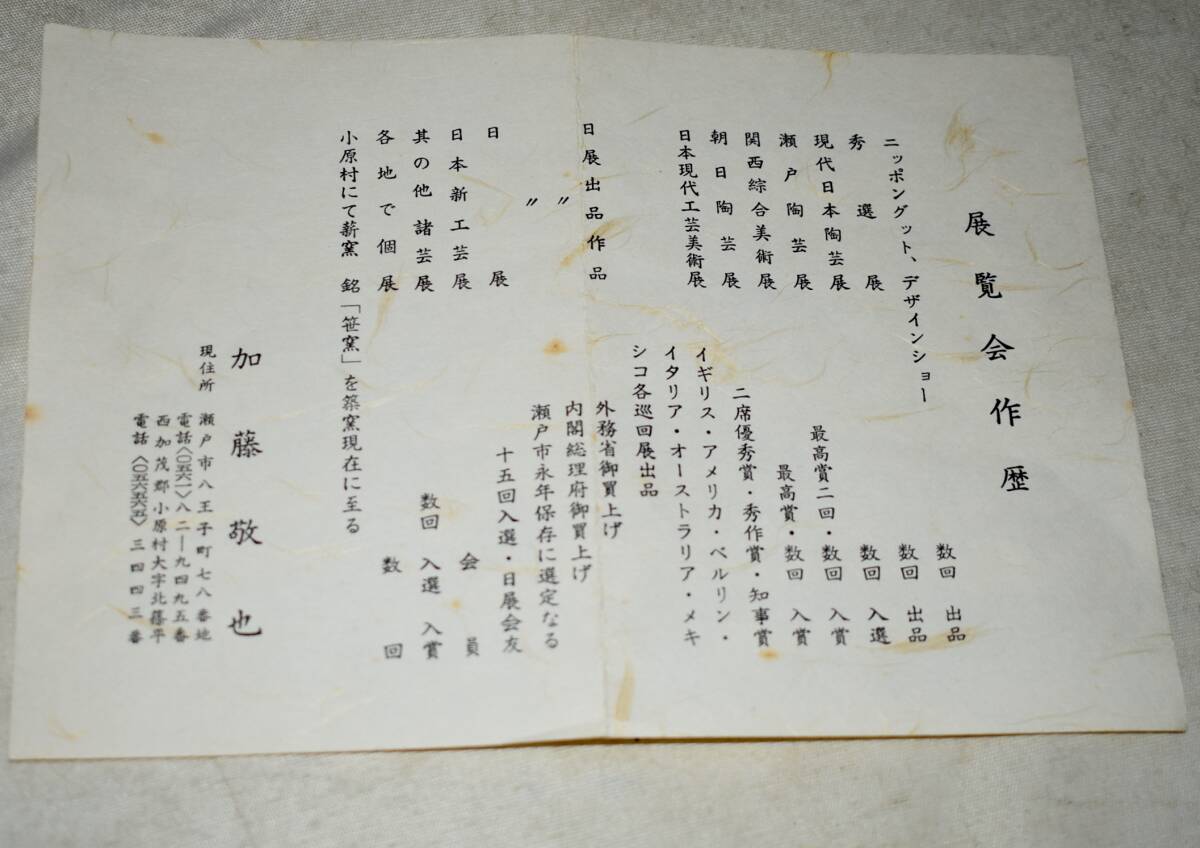 展覧会作歴
ニッポングット、デザインショー 数回 出品
秀選展 数回 出品
現代日本陶芸展 数回 入選
瀬戸陶芸展 最高賞二回・数回 入賞
関西綜合美術展 最高賞・数回 入賞
朝日陶芸展 二席優秀賞・秀作賞・知事賞
日本現代工芸美術展 イギリス・アメリカ・ベルリン・
イタリア・オーストラリア・メキ
シコ各巡回展出品
日展出品作品 外務省御買上げ
〃 内閣総理府御買上げ
〃 瀬戸市永年保存に選定なる
日展 十五回入選・日展会友
日本新工芸展 会員
其の他諸芸展 数回 入選 入賞
各地で個展 数回
小原村にて薪窯 銘「笹窯」を築窯現在に至る
加藤敬也
現住所 瀬戸市八王子町七八番地
電話〈〇五六一〉八二―九四九五番
西加茂郡小原村大字北篠平
電話〈〇五六五六五〉三四四三番